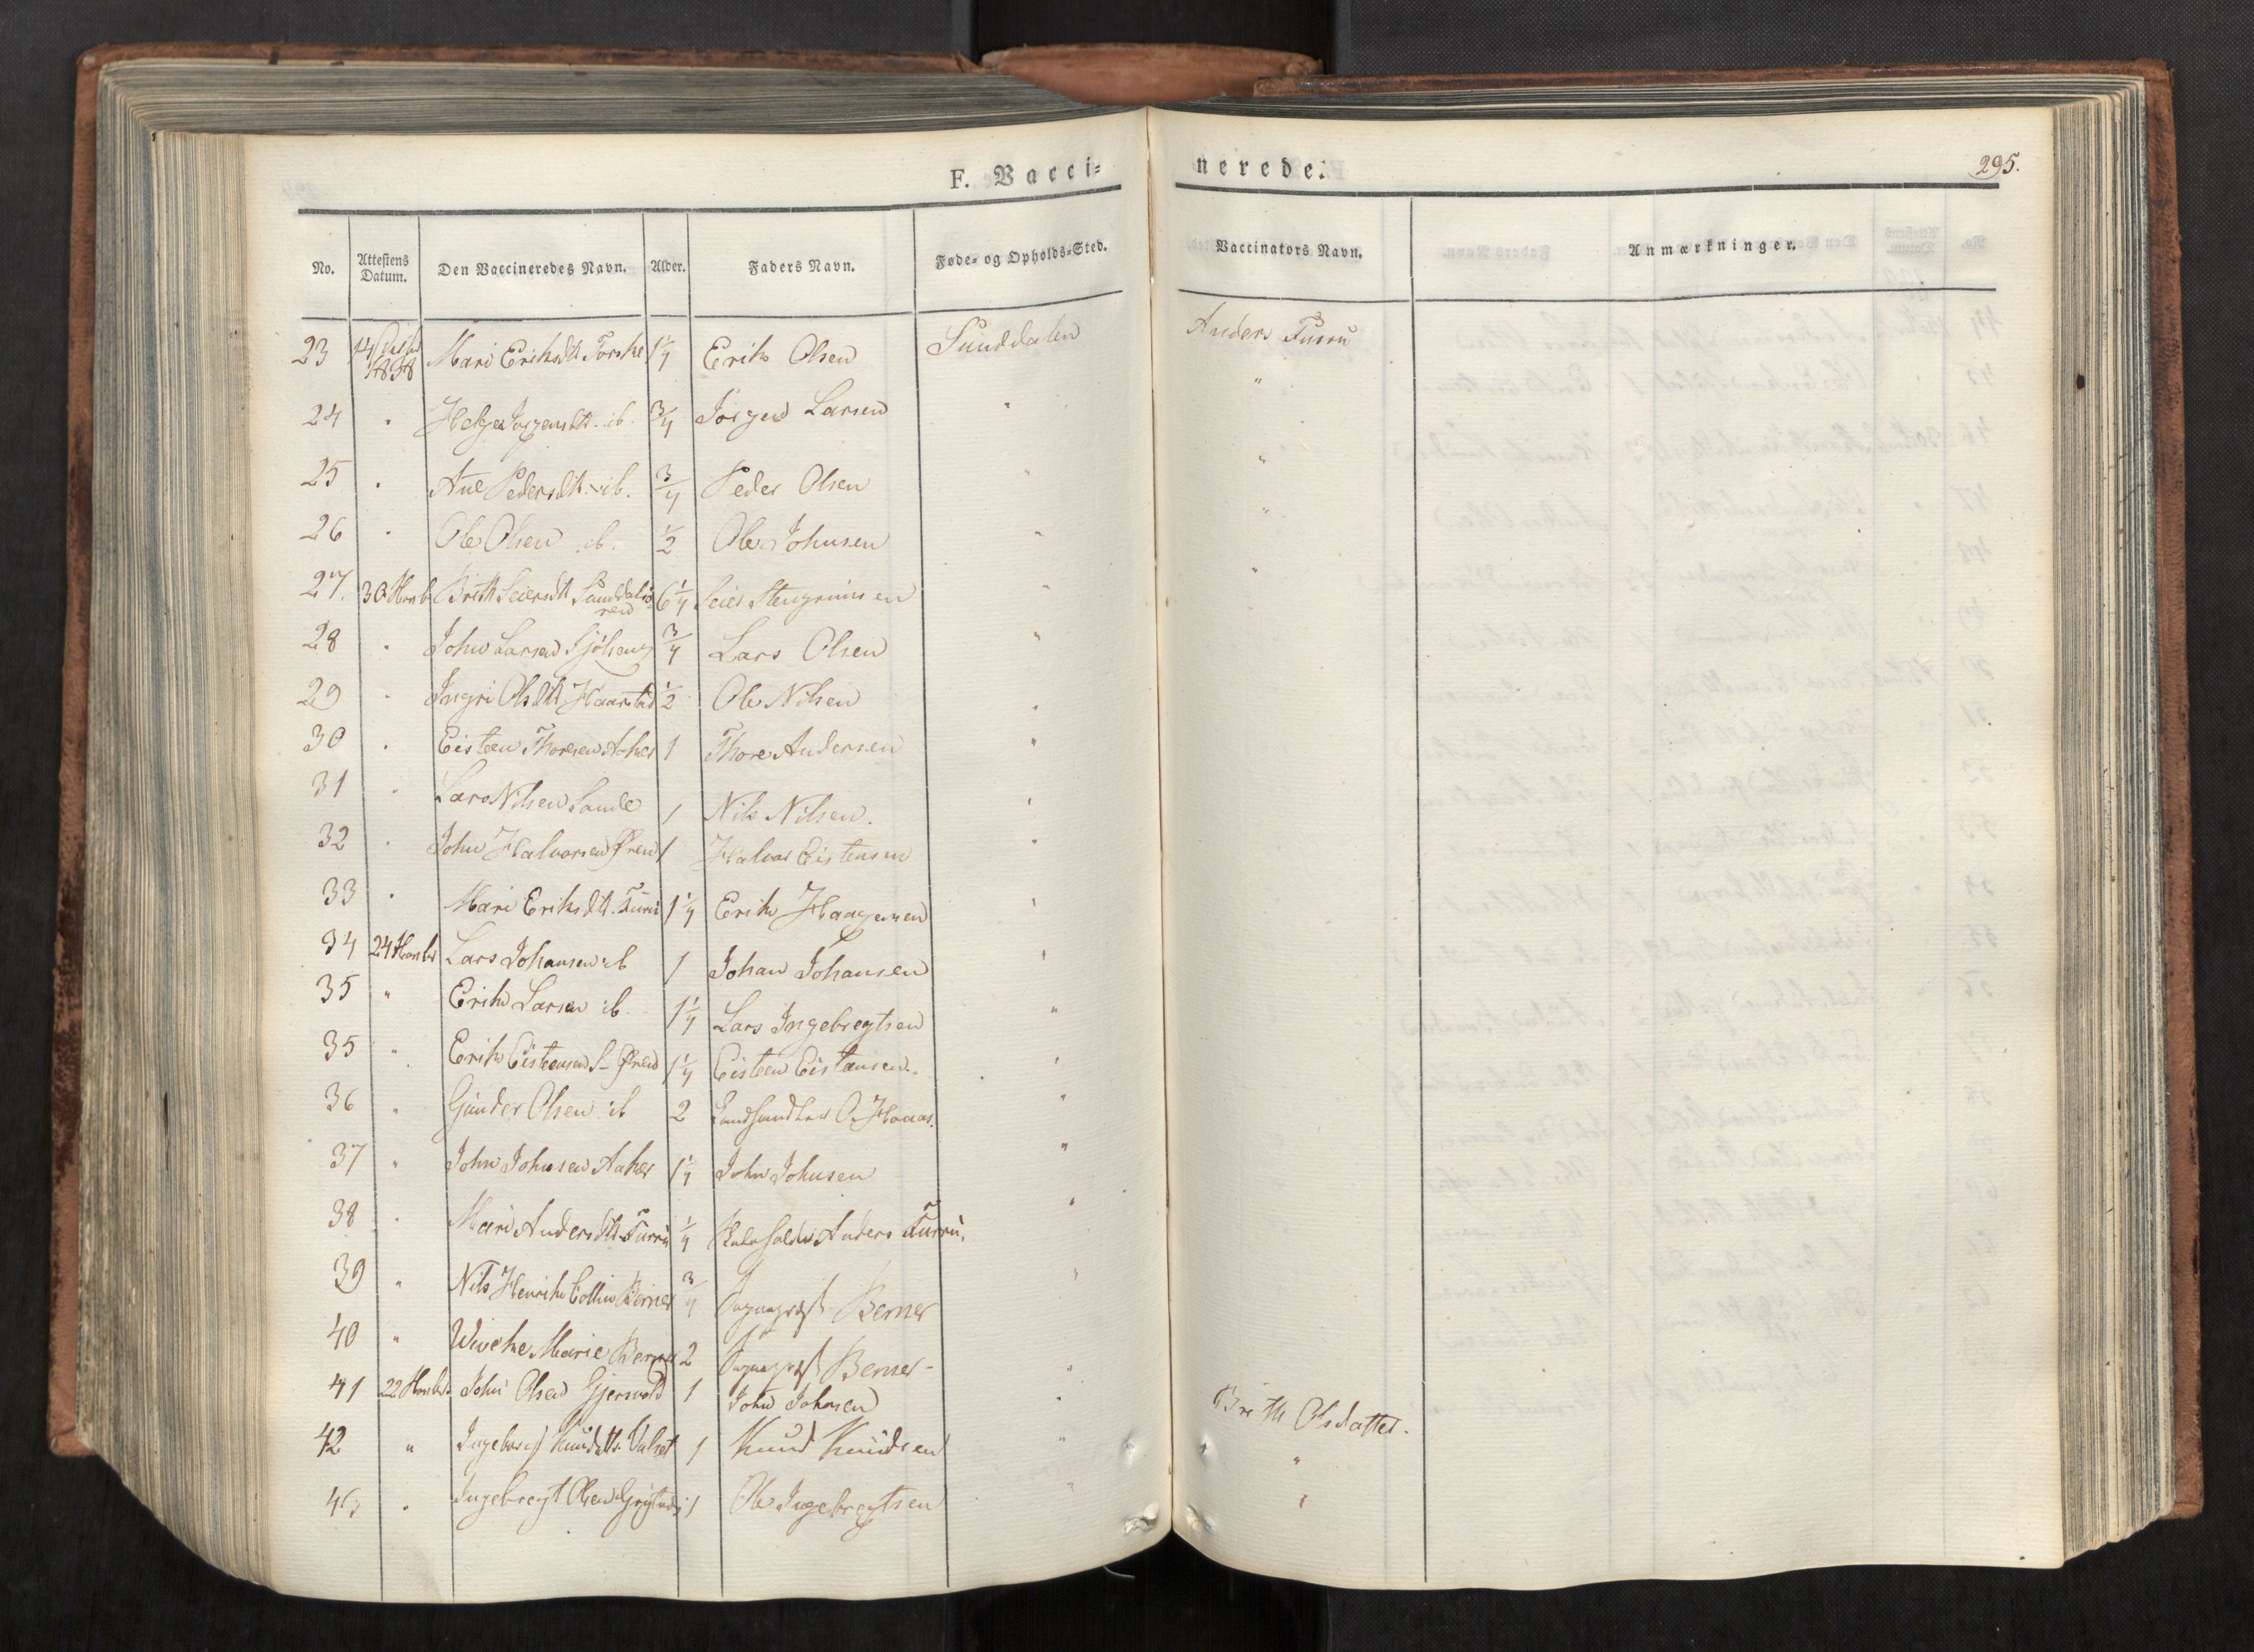 F. Vacci=
nerede.
295.
No. Attestens Datum. Den Vaccineredes Navn. Alder. Faders Navn. Føde= og Opholds=Sted. Vaccinators Navn. Anmærkninger.
23 14 1838 Mari Eriksdtt 1 1/4 Erik Olsen Sunddalen Anders Furru
24 " Jørgensdtt. ib. 3/4 Jørgen Larsen " "
25 " Ane Pedersdtt. ib. 3/4 Peder Olsen " "
26 " Ole Olsen ib. 1/2 Ole Johnsen " "
27. 30 Britt Seiersdtt Sunddalsø-
ren 6 1/4 Seier Stengrimsen " "
28 " John Larsen 3/4 Lars Olsen "
29 " Ingri Olsdtt Haarstad 1/2 Ole Nilsen "
30 " Eisteen Thoresen Aaker 1 Thore Andersen "
31 " Lars Nilsen Sande 1 Nils Nilsen. "
32 " John Halvorsen Øren 1 Halvor Eistensen "
33 " Mari Eriksdtt. Furru 1 1/4 Erik Haagensen "
34 24 Lars Johansen ib 1 Johan Johansen "
35 " Erik Larsen ib. 1 1/4 Lars Ingebregtsen "
35 " Erik Eisteensen S- Øren 1 1/4 Eisteen Eistensen. "
36 " Gunder Olsen ib 2 O. "
37 " John Johnsen Aaker 1 1/4 John Johnsen "
38 " Mari Andersdtt Furru 1/4 Anders Furru. "
39 " Nils Henrik Collin Berner 3/4 Sognepræst Berner "
40 " Wiveke Marie Berner 2 Sognepræst Berner- "
41 22 John Olsen Gjersvold 1 John Johnsen " Britt Olsdatter.
42 " Ingeborg Knudsdtt 1 Knud Knudsen " "
43 " Ingebregt Olsen 1 Ole Ingebregtsen " "